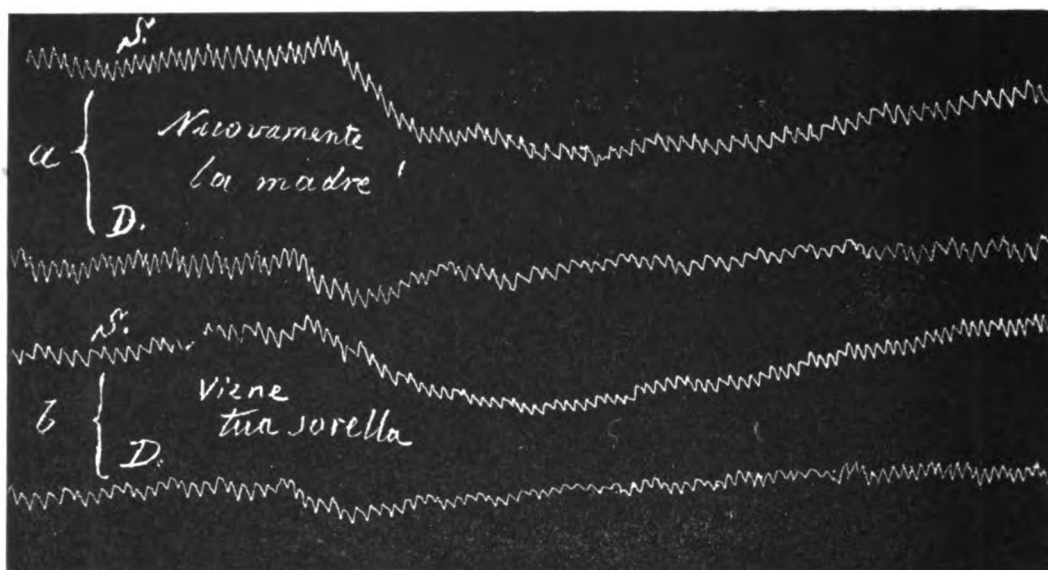 S.
a
Nuovamente
la madre
D.
S.
b
Viene
tua sorella
D.